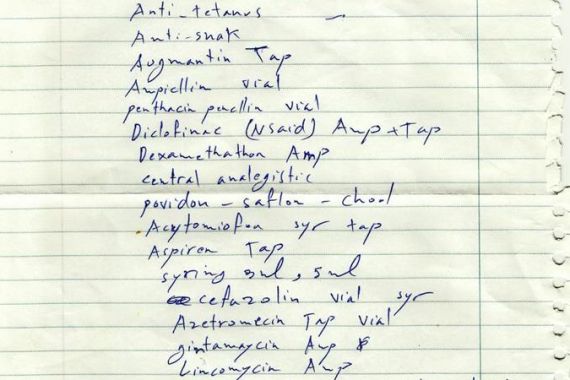 Anti-tetanus
Anti-snak
Augmantin Tap
Ampicllin vial
penthacin pencllin vial
Diclofinac (Nsaid) Amp + Tap
Dexamethathon Amp
central analegistic
povidon - saflon -
Acytomiofen syr tap
Aspiren Tap
syring 3ml, 5ml
cefazolin vial syr
Azetromecin Tap vial
gintamaycin Amp
Lincomycin Amp